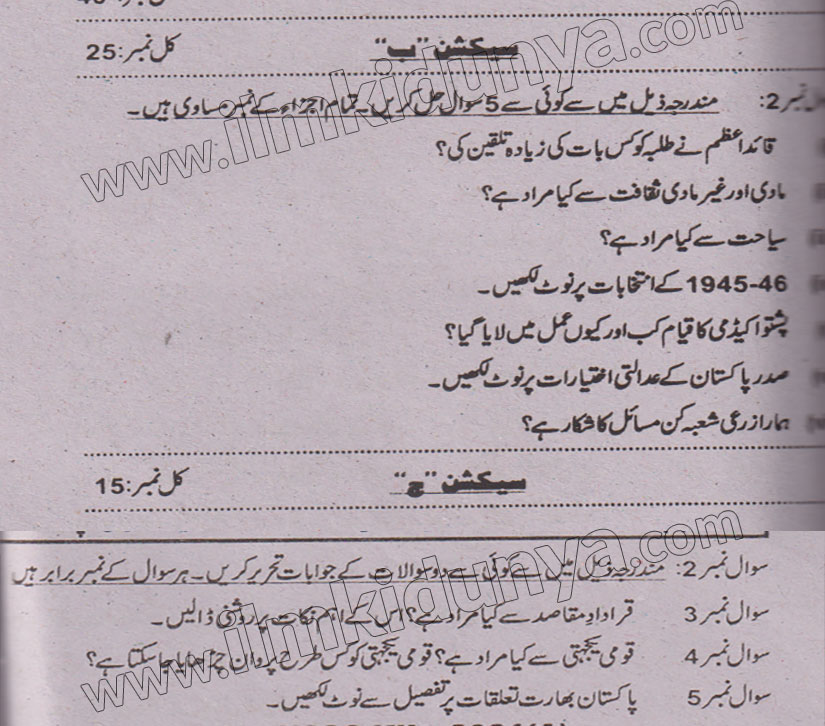 سیکشن "ب" کل نمبر:25
نمبر 2: مندرجہ ذیل میں سے کوئی سے 5 سوال حل کریں۔ تمام اجزاء کے نمبر مساوی ہیں۔
قائداعظم نے طلبہ کو کس بات کی زیادہ تلقین کی؟
مادی اور غیر مادی ثقافت سے کیا مراد ہے؟
سیاحت سے کیا مراد ہے؟
1945-46 کے انتخابات پر نوٹ لکھیں۔
پشتو اکیڈمی کا قیام کب اور کیوں عمل میں لایا گیا؟
صدر پاکستان کے عدالتی اختیارات پر نوٹ لکھیں۔
ہمارا زرعی شعبہ کن مسائل کا شکار ہے؟
سیکشن "ج" کل نمبر:15
سوال نمبر 2: مندرجہ ذیل میں سے کوئی سے دو سوالات کے جوابات تحریر کریں۔ ہر سوال کے نمبر برابر ہیں
سوال نمبر 3 قراداد مقاصد سے کیا مراد ہے؟ اس کے اہم نکات پر روشنی ڈالیں۔
سوال نمبر 4 قومی یکجہتی سے کیا مراد ہے؟ قومی یکجہتی کو کس طرح پروان چڑھایا جا سکتا ہے؟
سوال نمبر 5 پاکستان بھارت تعلقات پر تفصیل سے نوٹ لکھیں۔
www.ilmkidunya.com
www.ilmkidunya.com